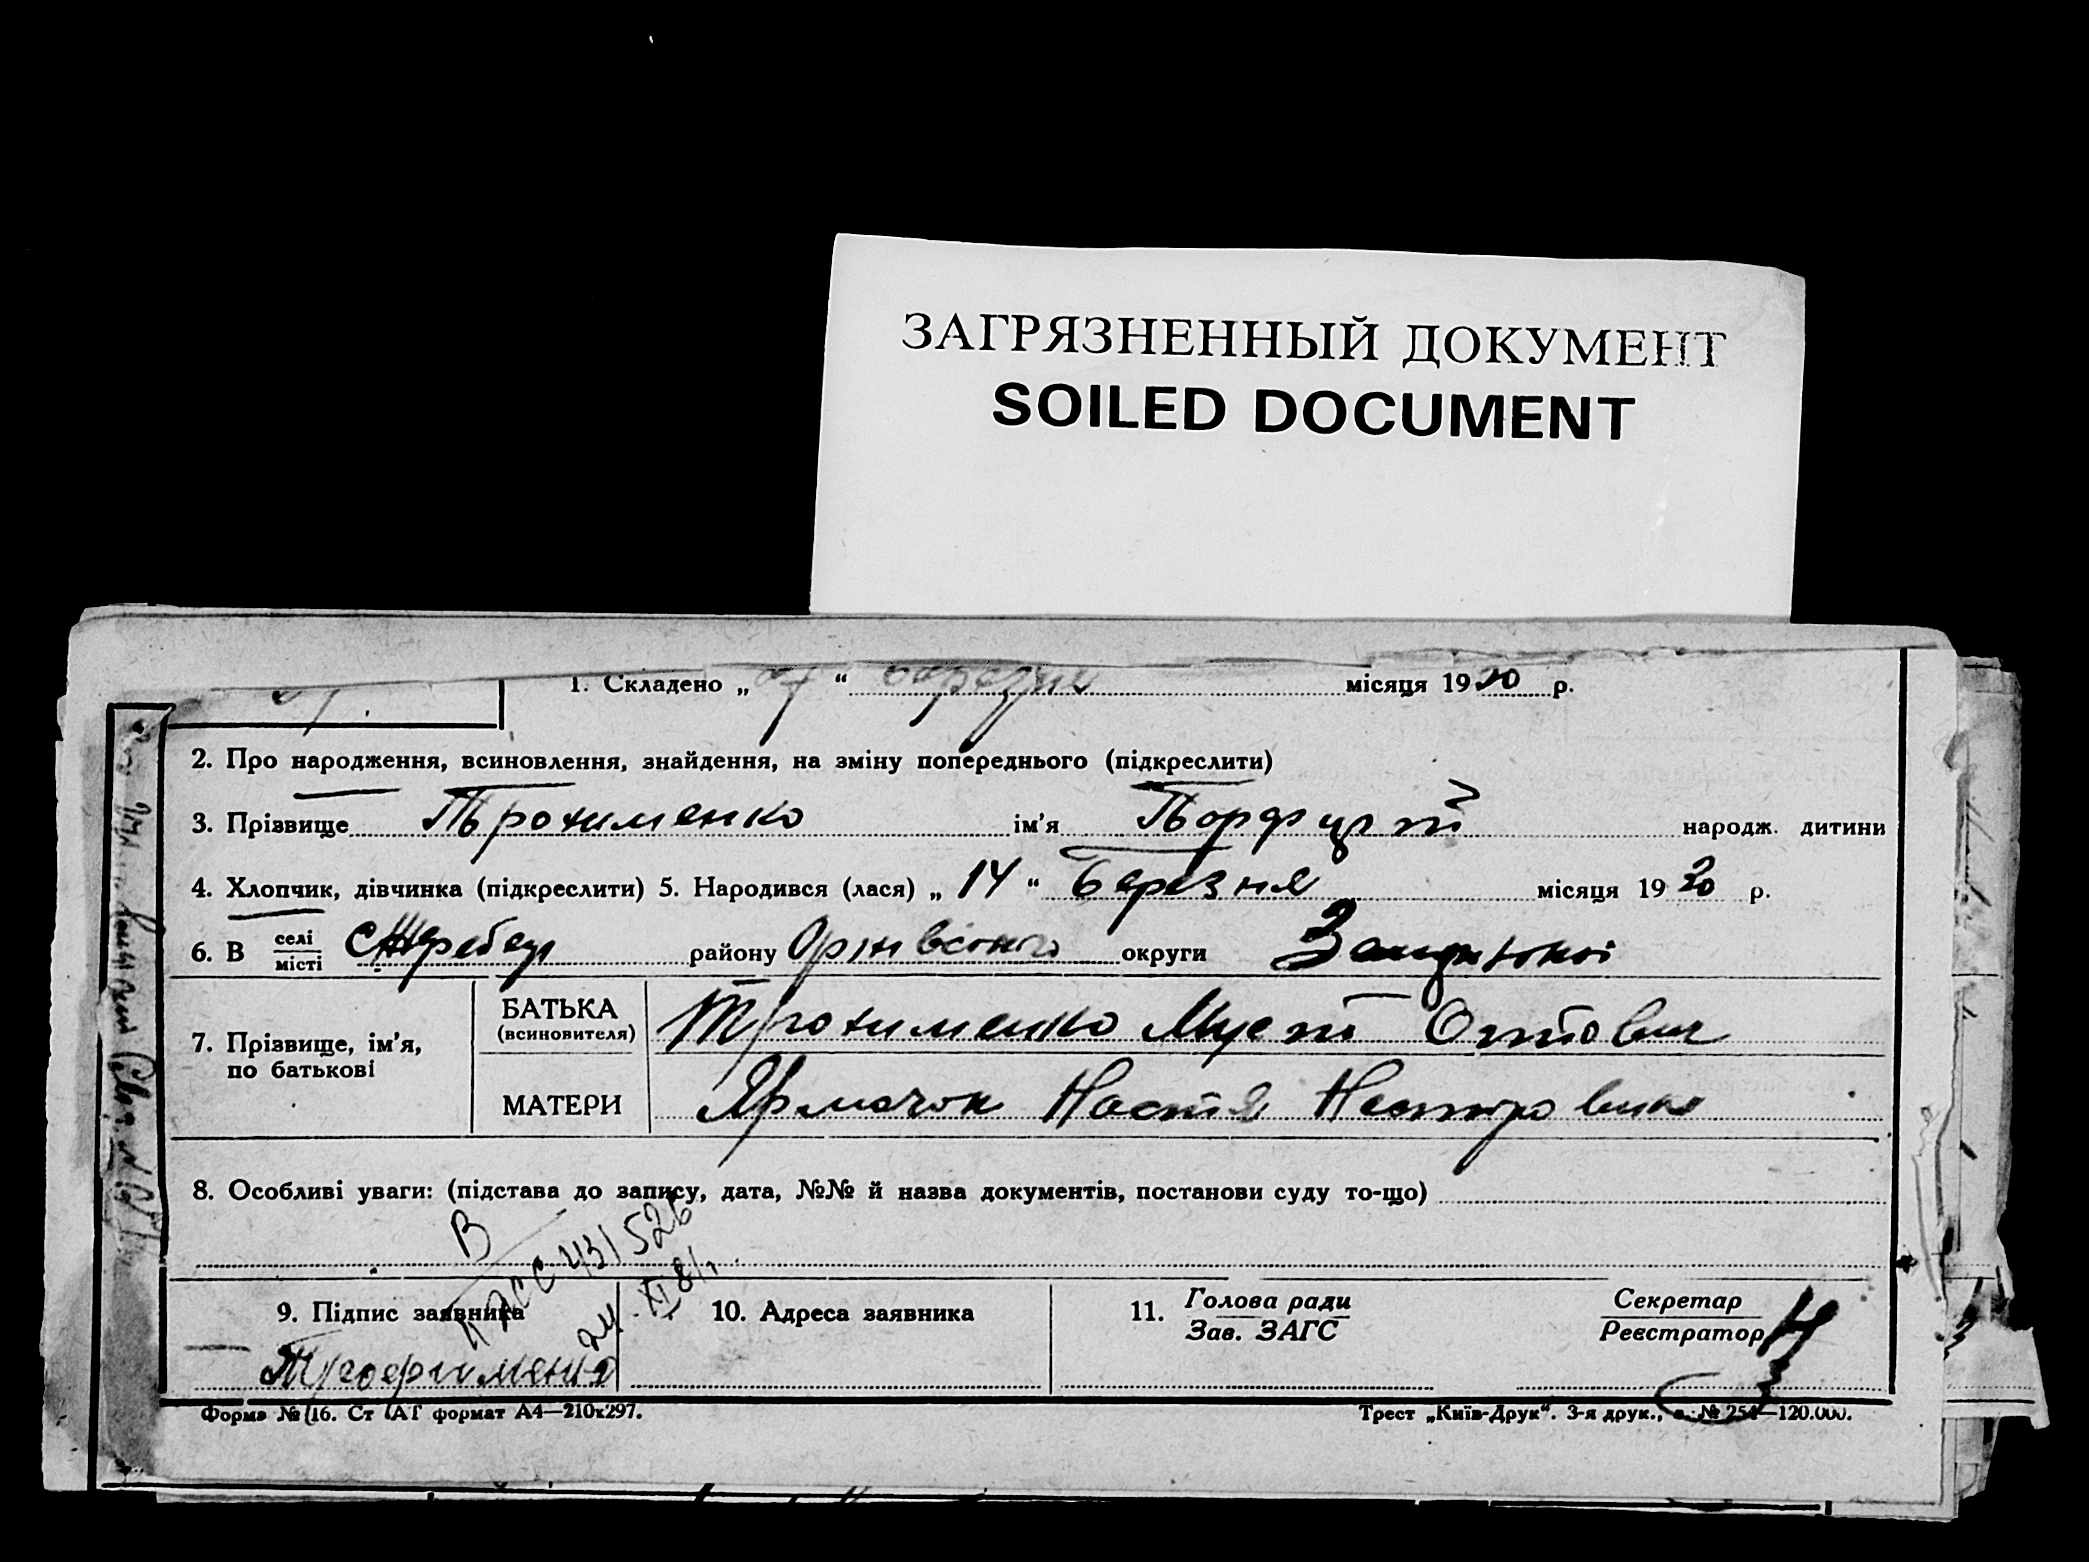 ЗАГРЯЗНЕННЫЙ ДОКУМЕНТ
SOILED DOCUMENT
1. Складено „ “ березня місяця 1920 р.
2. Про народження, всиновлення, знайдення, на зміну попереднього (підкреслити)
3. Прізвище Трохименко ім'я Порфирій народж. дитини
4. Хлопчик, дівчинка (підкреслити) 5. Народився (лася) „ 14 “ Березня місяця 1920 р.
6. В селі місті с Жеребец району Оріхівського округи
7. Прізвище, ім'я, по батькові
БАТЬКА (всиновителя) Трохименко Мусій
МАТЕРИ Ярмачок Настя Несторовина
8. Особливі уваги: (підстава до запису, дата, №№ й назва документів, постанови суду то-що)
В
431526
24 XI 81
9. Підпис заявника
10. Адреса заявника
11. Голова ради
Зав. ЗАГС
Секретар
Реєстратор
Форма № 116. Ст АГ формат А4—210х297.
Трест „Київ-Друк“. 3-я друк., з. № 254—120.000.